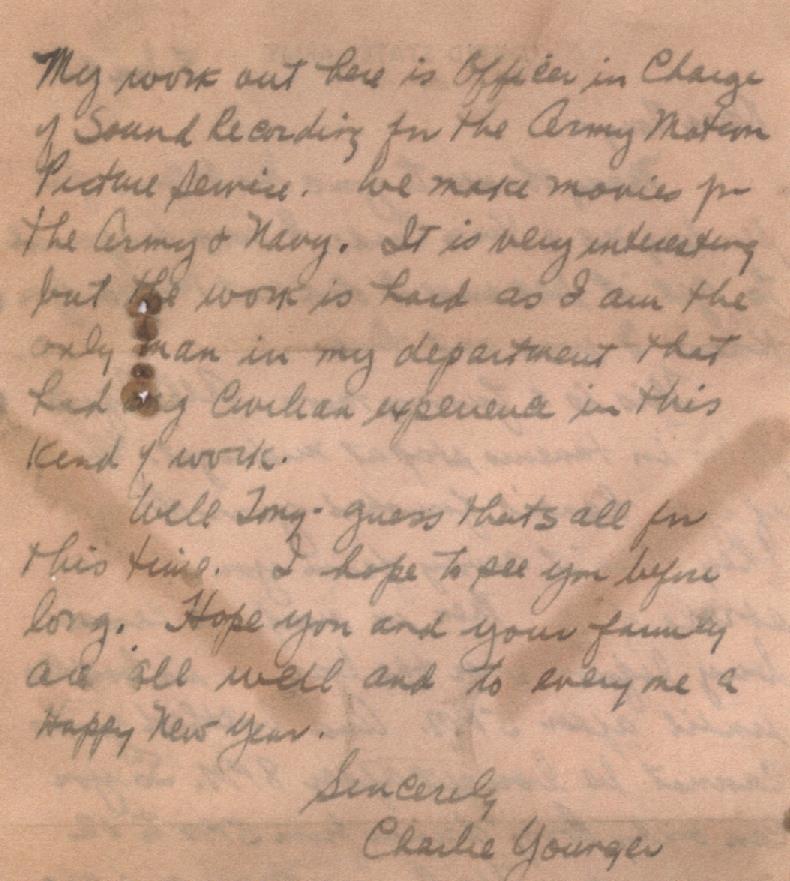 My work out here is Officer in Charge
of Sound Recording for the Army Motion
Picture Service. We make movies for
the Army & Navy. It is very interesting
but the work is hard as I am the
only man in my department that
had any Civilian experience in this
kind of work.
Well Tony- guess thats all for
this time. I hope to see you before
long. Hope you and your family
are all well and to everyone a
Happy New Year.
Sincerely
Charlie Younger